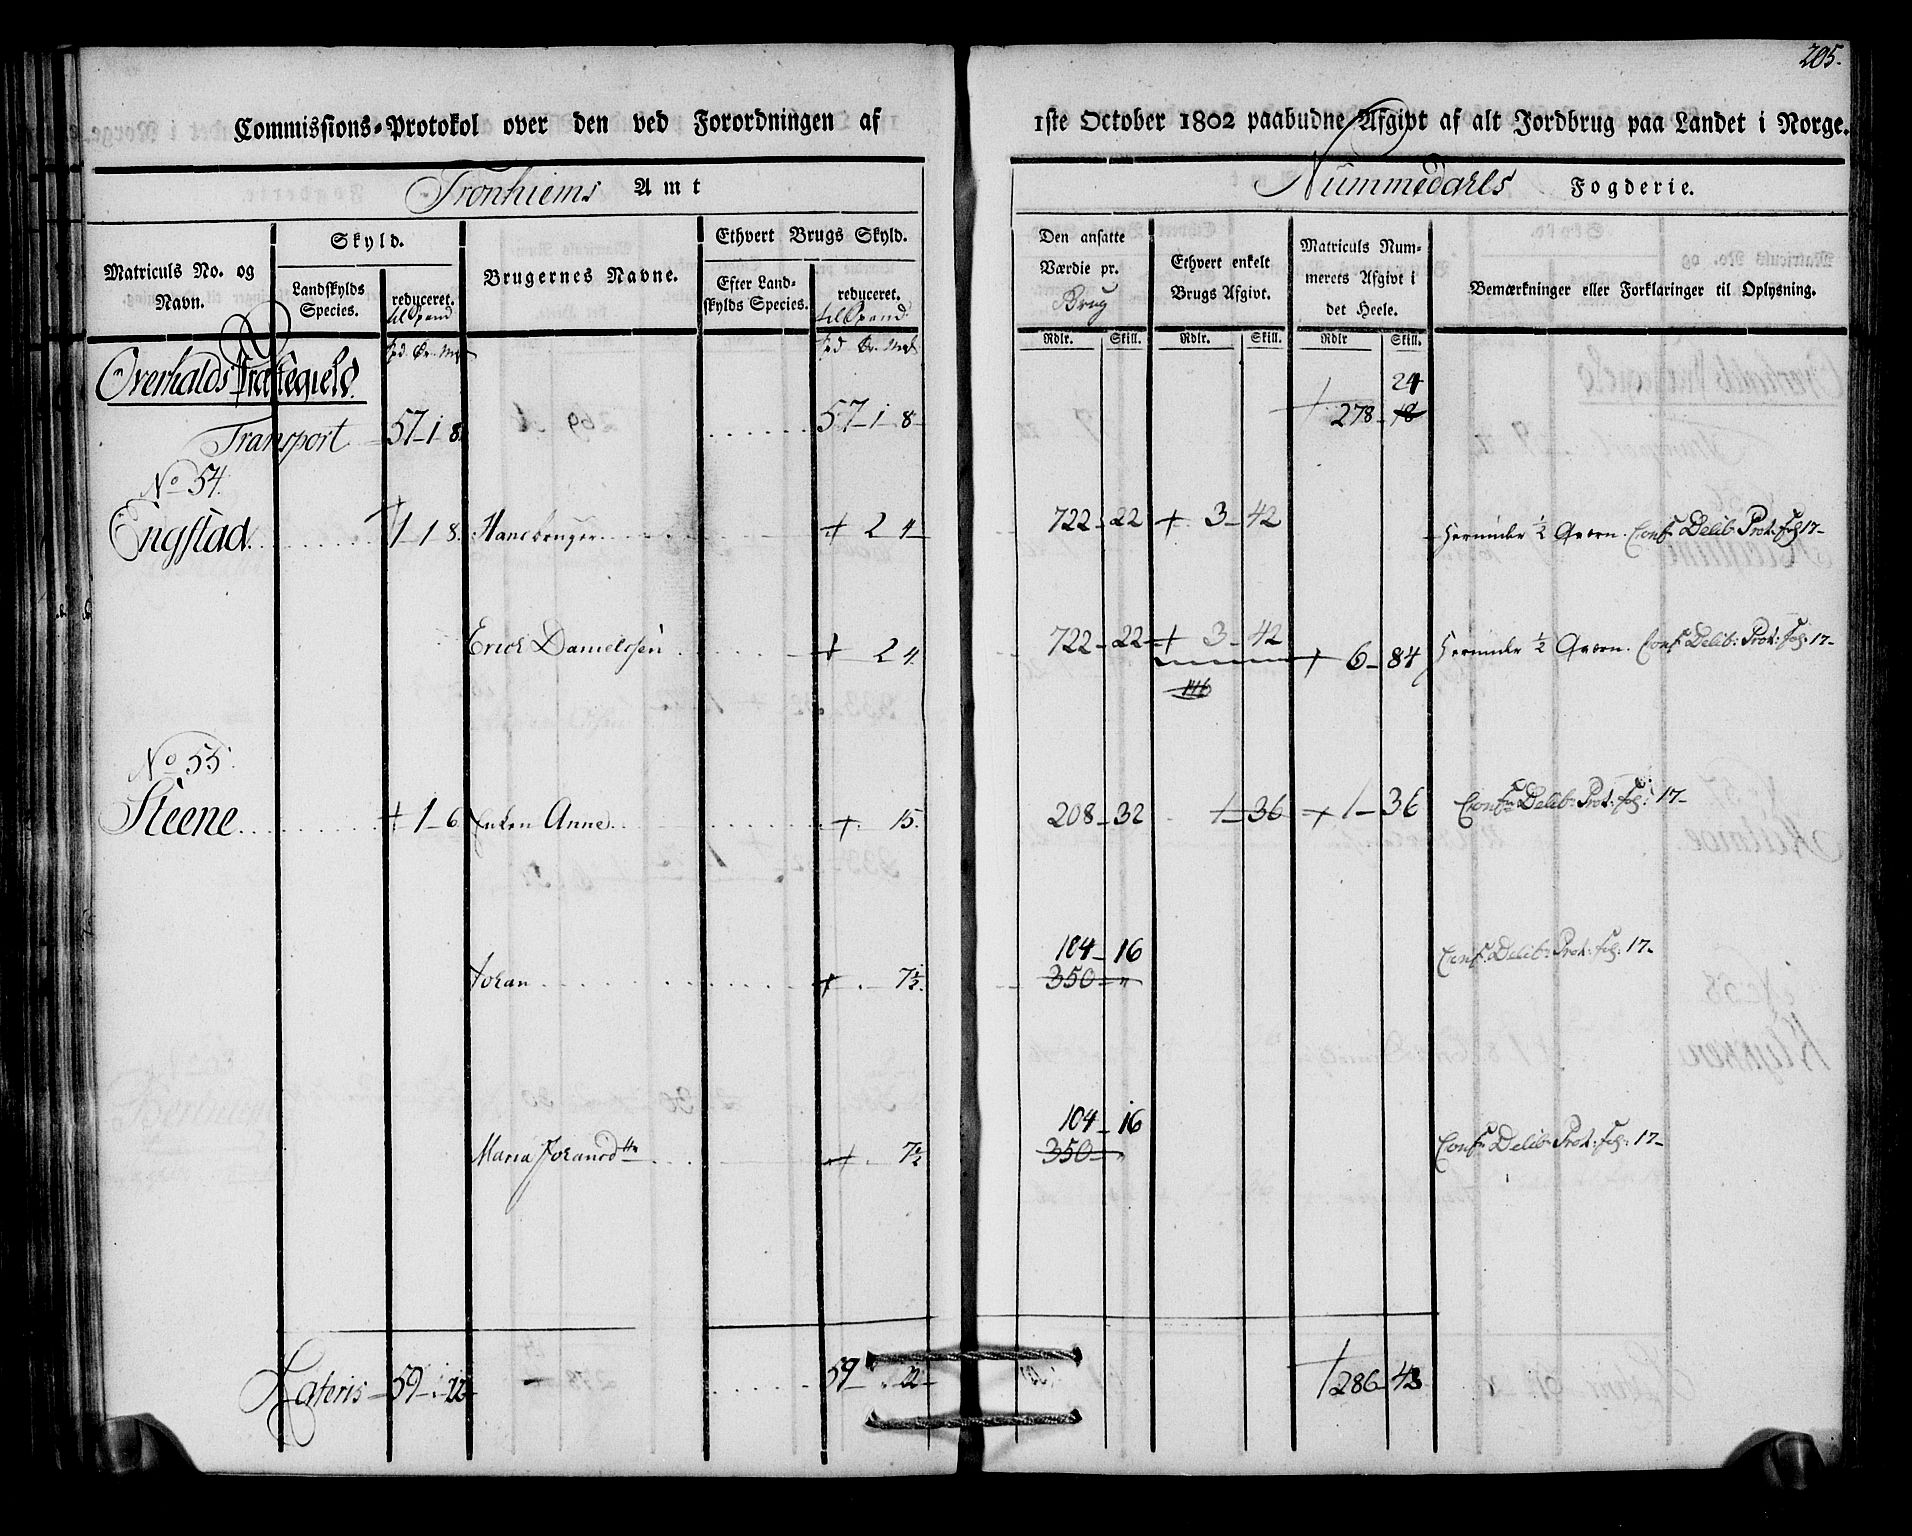 205.
Commissions-Protokol over den ved Forordningen af 1ste October 1802 paabudne Afgivt af alt Jordbrug paa Landet i Norge.
Tronhiems Amt
Nummedahls Fogderie.
Matriculs No. og Navn.
Skyld.
Landskylds Species.
reduceret. til Spand
Brugernes Navne.
Ethvert Brugs Skyld.
Efter Landskylds Species.
reduceret. til Spand
Den ansatte Værdie pr. Brug
Ethvert enkelt Brugs Afgivt.
Matriculs Nummerets Afgivt i det Heele.
Bemærkninger eller Forklaringer til Oplysning.
Rdlr. Skill. Rdlr. Skill. Rdlr Skill.
Overhalds Præstegield.
24
Transport 57-1-8. 57-1-8 278-18
No 54.
Engstad. 1-1-8. + 2 4 722-22 + 3-42 Herunder ½ Qværn. Conf. Delib: Prot: fol: 17-
Erich Danielsen + 2 4. 722-22 + 3-42 + 6-84 Herunder ½ Qværn. Conf. Delib: Prot: fol: 17-
No 55.
Steene + 1-6 Enken Anne + 15. 208-32 1-36 + 1-36 Conf. Delib: Prot: fol: 17-
104-16
Johan + 7½. 350-" Conf. Delib: Prot: fol: 17-
104-16
Maria Johansd + 7½ 350-" Conf. Delib: Prot: fol: 17-
Lateris 59-"-22 59-"-22 286-48